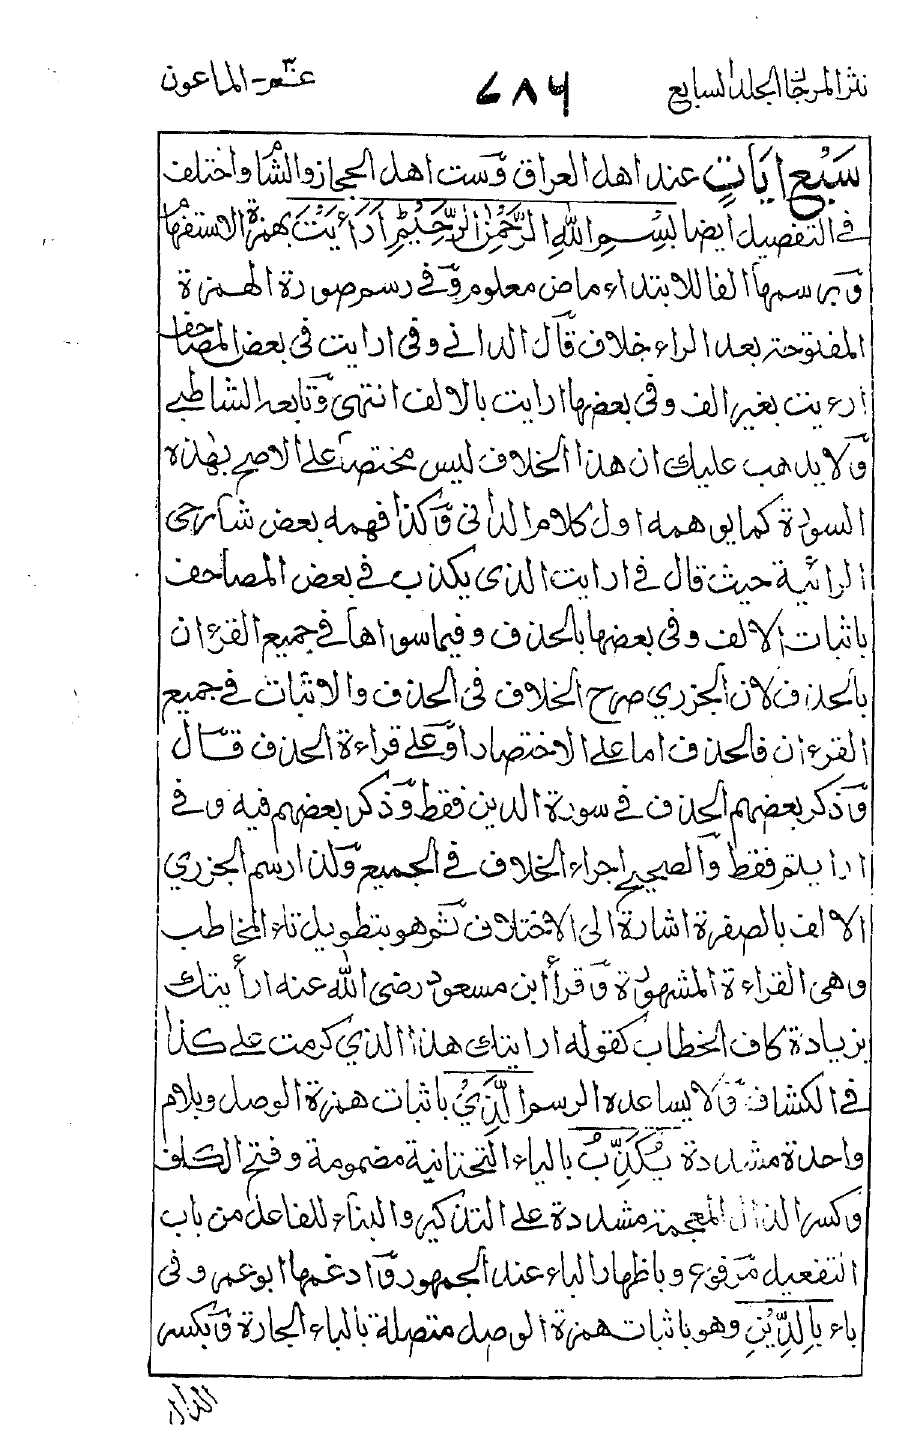 نثر المرجان المجلد السابع ٧٨٦ عمّ - الماعون
سَبْعُ اٰيَاتٍ عند اهل العراق وست اهل الحجاز والشام واختلف
في التفصيل ايضا بِسْمِ اللهِ الرَّحْمٰنِ الرَّحِيْمِ اَرَاَيْتَ بهمزة الاستفهام
وبرسمها الفا للابتداء ماض معلوم وفي رسم صورة الهمزة
المفتوحة بعد الراء خلاف قال الداني وفي ارايت في بعض المصاحف
ارءيت بغير الف وفي بعضها ارايت بالالف انتهى وتابعه الشاطبي
ولا يذهب عليك ان هذا الخلاف ليس مختصا على الاصح بهذه
السورة كما يوهمه اول كلام الداني وكذا فهمه بعض شارحي
الرائية حيث قال في ارايت الذي يكذب في بعض المصاحف
باثبات الالف وفي بعضها بالحذف وفيما سواها في جميع القرءان
بالحذف لان الجزري صرح الخلاف في الحذف والاثبات في جميع
القرءان فالحذف اما على الاختصار او على قراءة الحذف قال
وذكر بعضهم الحذف في سورة الدين فقط وذكر بعضهم فيه وفي
ارايتم فقط والصحيح اجراء الخلاف في الجميع ولذا رسم الجزري
الالف بالصفرة اشارة الى الاختلاف ثم هو بتطويل تاء المخاطب
وهي القراءة المشهورة وقرأ ابن مسعود رضى الله عنه ارأيتك
بزيادة كاف الخطاب كقوله ارايتك هذا الذي كرمت على كذا
في الكشاف ولا يساعده الرسم الَّذِيْ باثبات همزة الوصل وبلام
واحدة مشددة يُكَذِّبُ بالياء التحتانية مضمومة وفتح الكاف
وكسر الذال المعجمة مشددة على التذكير والبناء للفاعل من باب
التفعيل مرفوع وباظهار الباء عند الجمهور وادغمها ابو عمرو في
باء بِالدِّيْنِ وهو باثبات همزة الوصل متصلة بالباء الجارة وبكسر
الدال